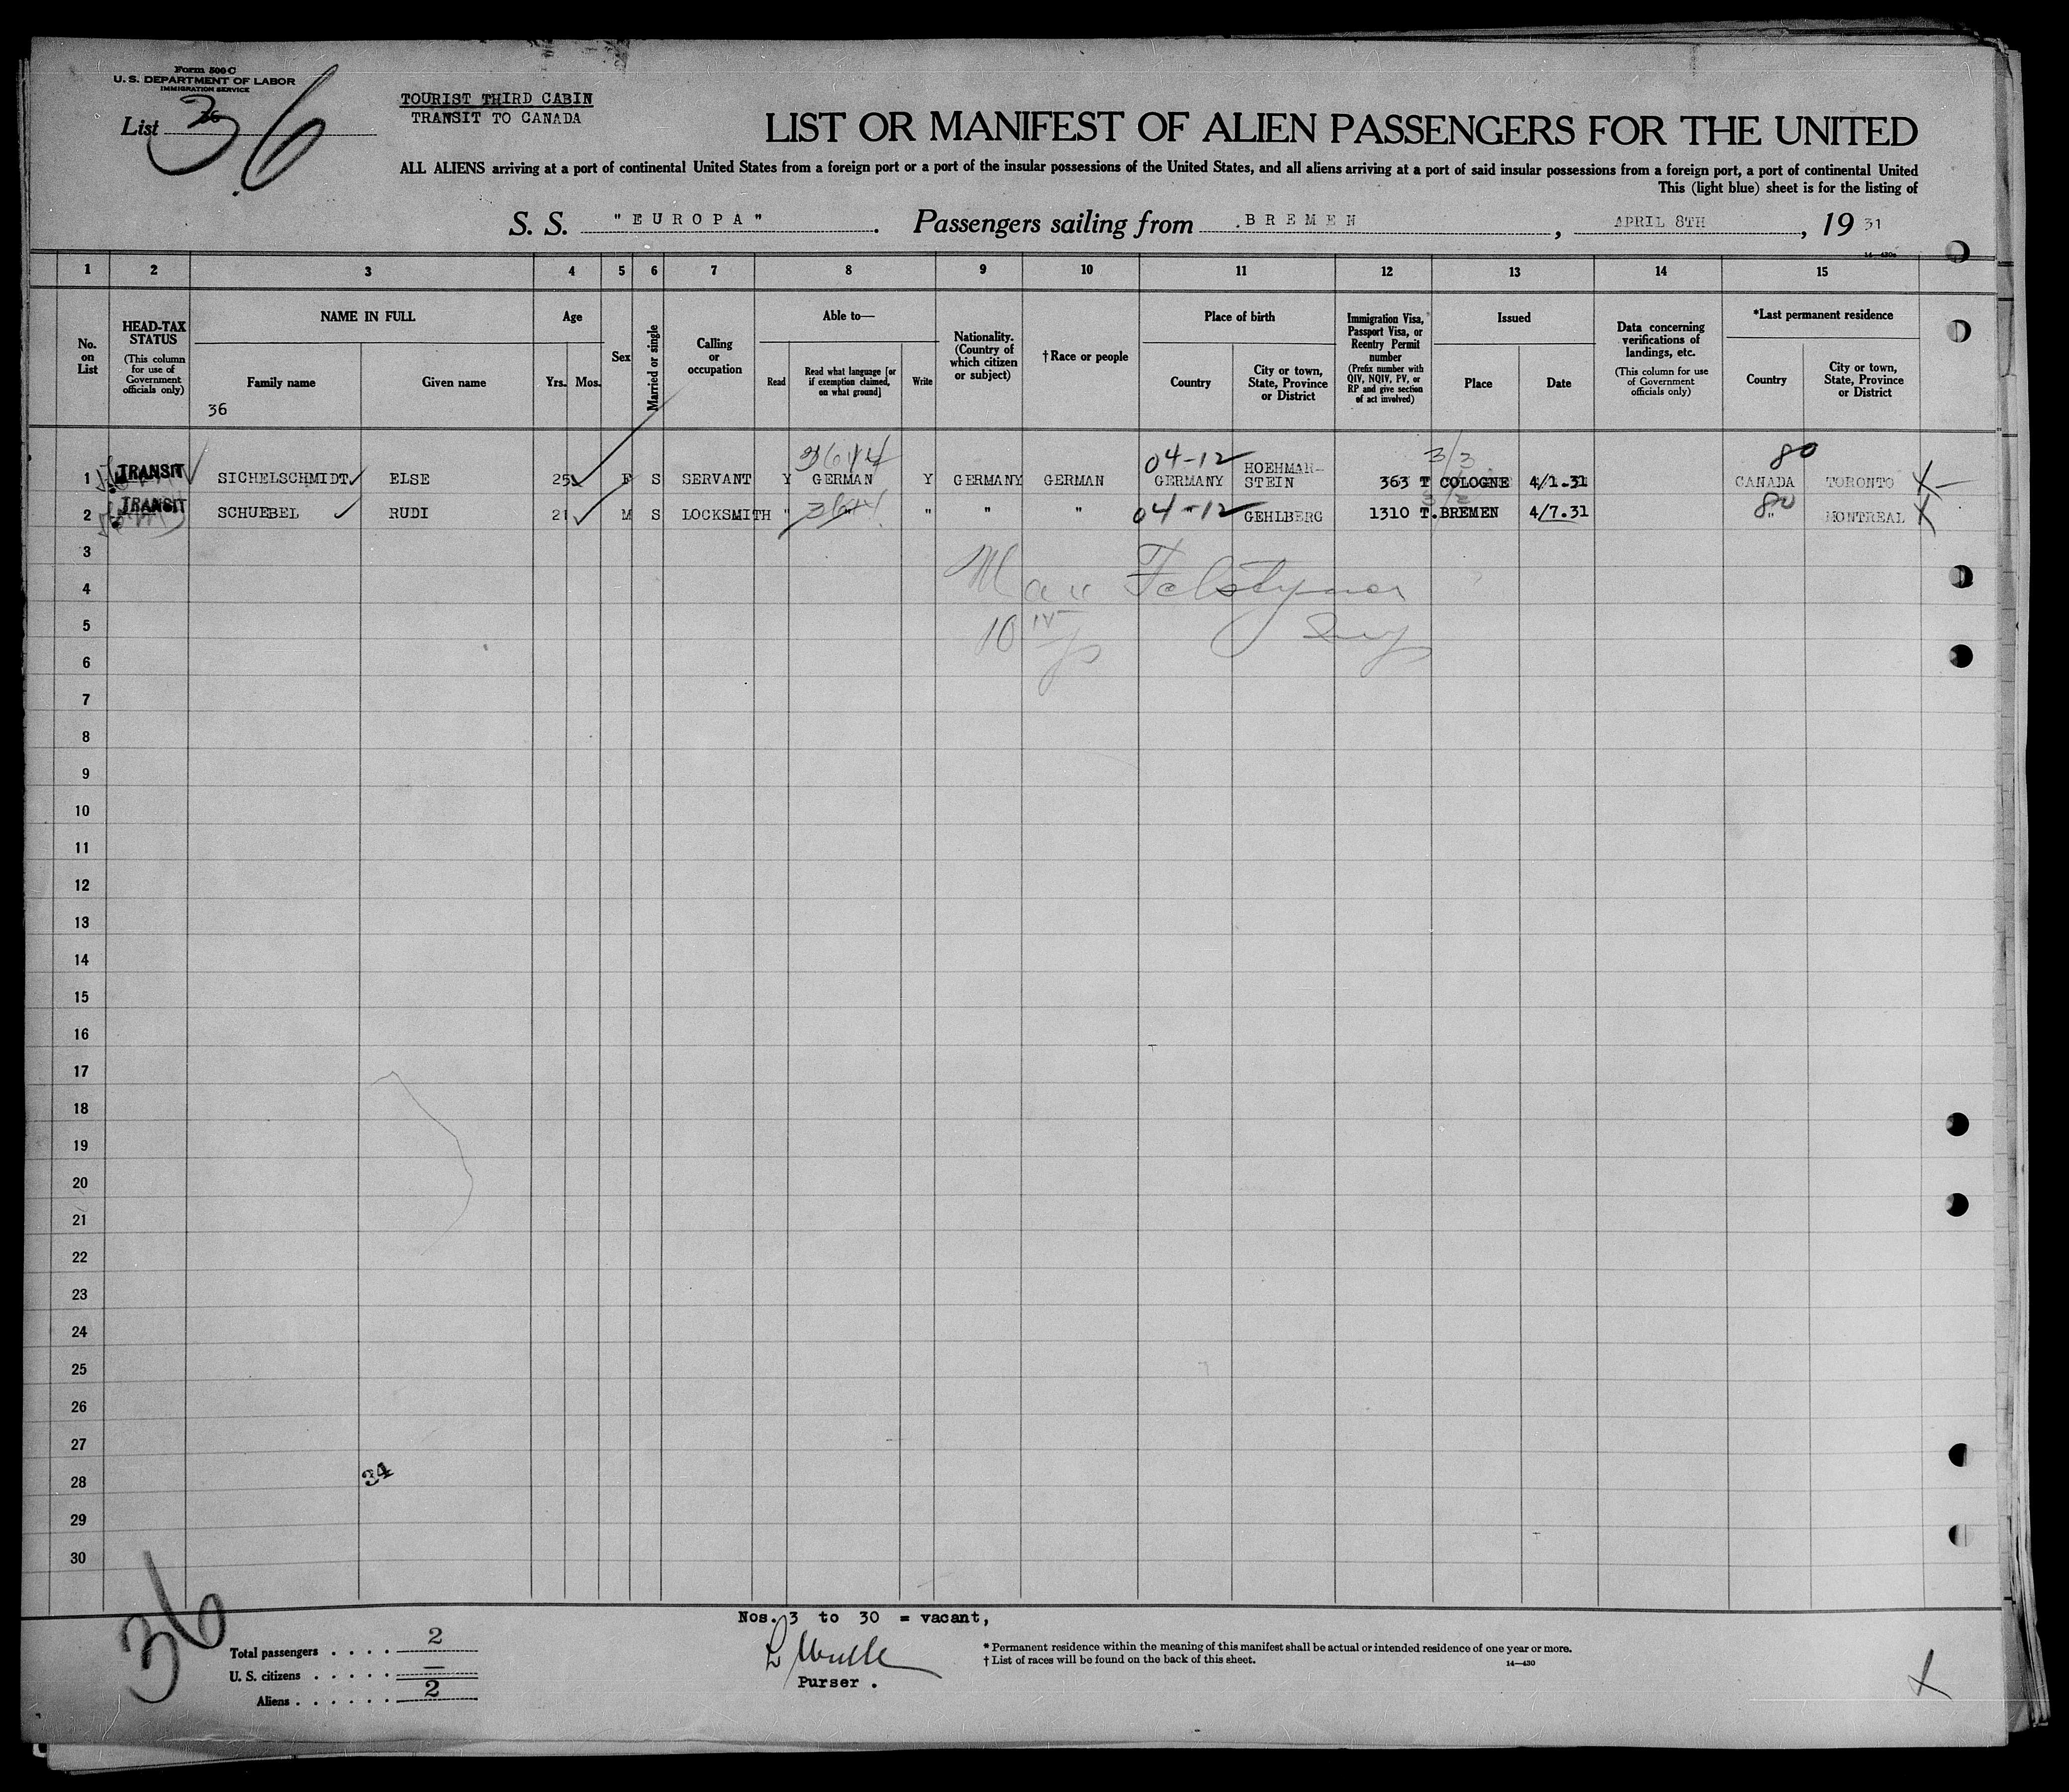 Form 500 C
U. S. DEPARTMENT OF LABOR
IMMIGRATION SERVICE
List 36
TOURIST THIRD CABIN
TRANSIT TO CANADA
LIST OR MANIFEST OF ALIEN PASSENGERS FOR THE UNITED
ALL ALIENS arriving at a port of continental United States from a foreign port or a port of the insular possessions of the United States, and all aliens arriving at a port of said insular possessions from a foreign port, a port of continental United
This (light blue) sheet is for the listing of
S. S. "EUROPA". Passengers sailing from .BREMEN, APRIL 8TH, 19 31
1 2 3 4 5 6 7 8 9 10 11 12 13 14 15
No. on List
HEAD-TAX STATUS
(This column for use of Government officials only)
NAME IN FULL
Family name
Given name
36
Age
Yrs. Mos.
Sex
Married or single
Calling or occupation
Able to—
Read
Read what language [or if exemption claimed, on what ground]
Write
Nationality. (Country of which citizen or subject)
†Race or people
Place of birth
Country
City or town, State, Province or District
Immigration Visa, Passport Visa, or Reentry Permit number
(Prefix number with QIV, NQIV, PV, or RP and give section of act involved)
Issued
Place
Date
Data concerning verifications of landings, etc.
(This column for use of Government officials only)
*Last permanent residence
Country
City or town, State, Province or District
04-12 3/3 80
1 TRANSIT SICHELSCHMIDT ELSE 25 F S SERVANT Y GERMAN Y GERMANY GERMAN GERMANY HOEHMAR-STEIN 363 T COLOGNE 4/1.31 CANADA TORONTO
2 TRANSIT SCHUEBEL RUDI 21 M S LOCKSMITH " " " " " 04-12 " GEHLBERG 1310 T. BREMEN 4/7.31 80 " MONTREAL
3
4
5
10
6
7
8
9
10
11
12
13
14
15
16
17
18
19
20
21
22
23
24
25
26
27
28
34
29
30
36
Nos. 3 to 30 = vacant,
Total passengers . . . . 2
U. S. citizens . . . . . —
Aliens . . . . . . 2
Purser .
* Permanent residence within the meaning of this manifest shall be actual or intended residence of one year or more.
† List of races will be found on the back of this sheet.
14—430